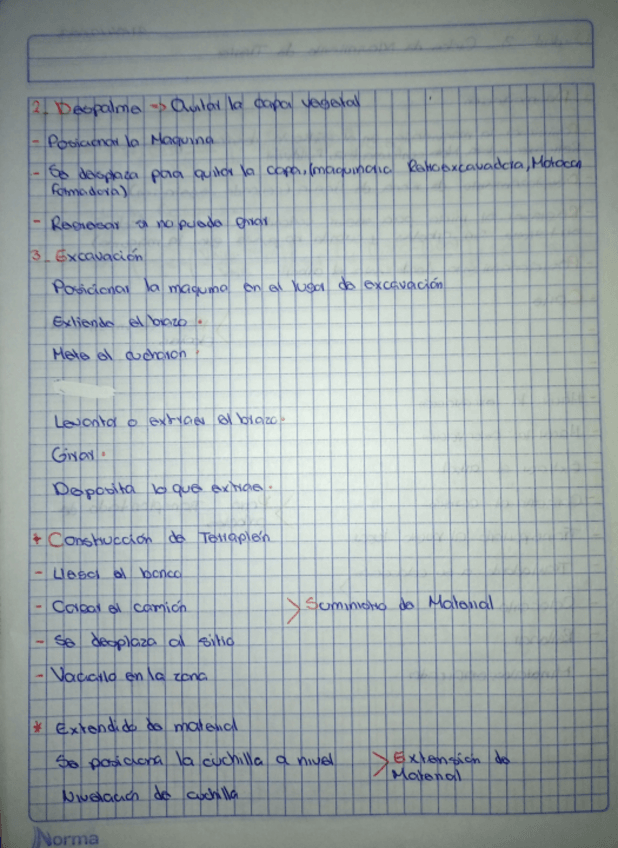 2. Despalme -> Quitar la capa vegetal
- Posicionar la Maquina
- Se desplaza para quitar la capa, (maquinaria Retroexcavadora, Motocon
formadora)
- Regresar si no puede girar
3. Excavación
Posicionar la maquina en el lugar de excavación
Extiende el brazo.
Mete el cucharon.
Levantar o extraer el brazo.
Girar.
Deposita lo que extrae.
* Construcción de Terraplén
- Llegar al banco
- Cargar el camión > Suministro de Material
- Se desplaza al sitio
- Vaciarlo en la zona
* Extendido de material
Se posiciona la cuchilla a nivel > Extensión de
Material
Nivelación de cuchilla
Norma